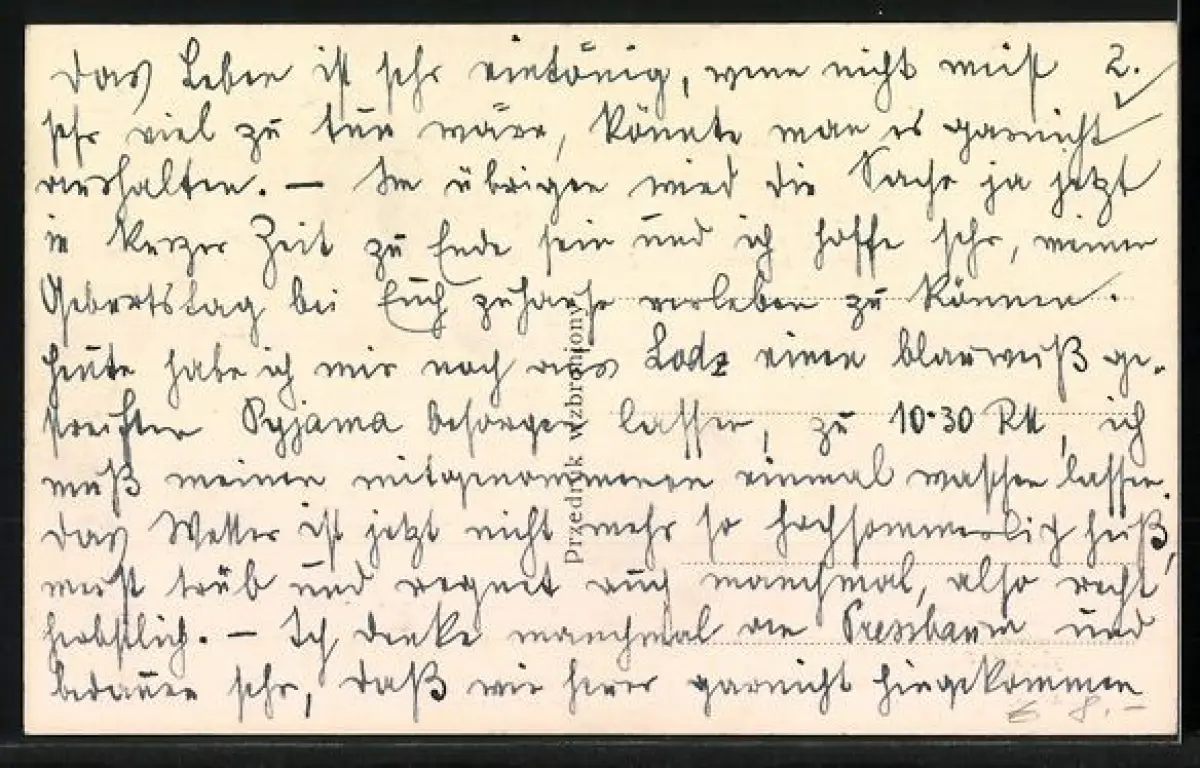 Das Leben ist sehr eintönig, wenn nicht meist 2.
sehr viel zu tun wäre, könnte man es garnicht
aushalten. — Im übrigen wird die Sache ja jetzt
in kurzer Zeit zu Ende sein und ich hoffe sehr, meinen
Geburtstag bei Euch zuhause verleben zu können.
Heute habe ich mir noch aus Lodz einen blauweiß ge-
streiften Pyjama besorgen lassen, zu 10·30 RM, ich
muß meinen mitgenommenen einmal waschen lassen.
Das Wetter ist jetzt nicht mehr so hochsommerlich heiß,
meist trüb und regnet auch manchmal, also recht
herbstlich. — Ich denke manchmal an Pressbaum und
bedauere sehr, daß wir heuer garnicht hingekommen
Przedruk wzbroniony
8.-